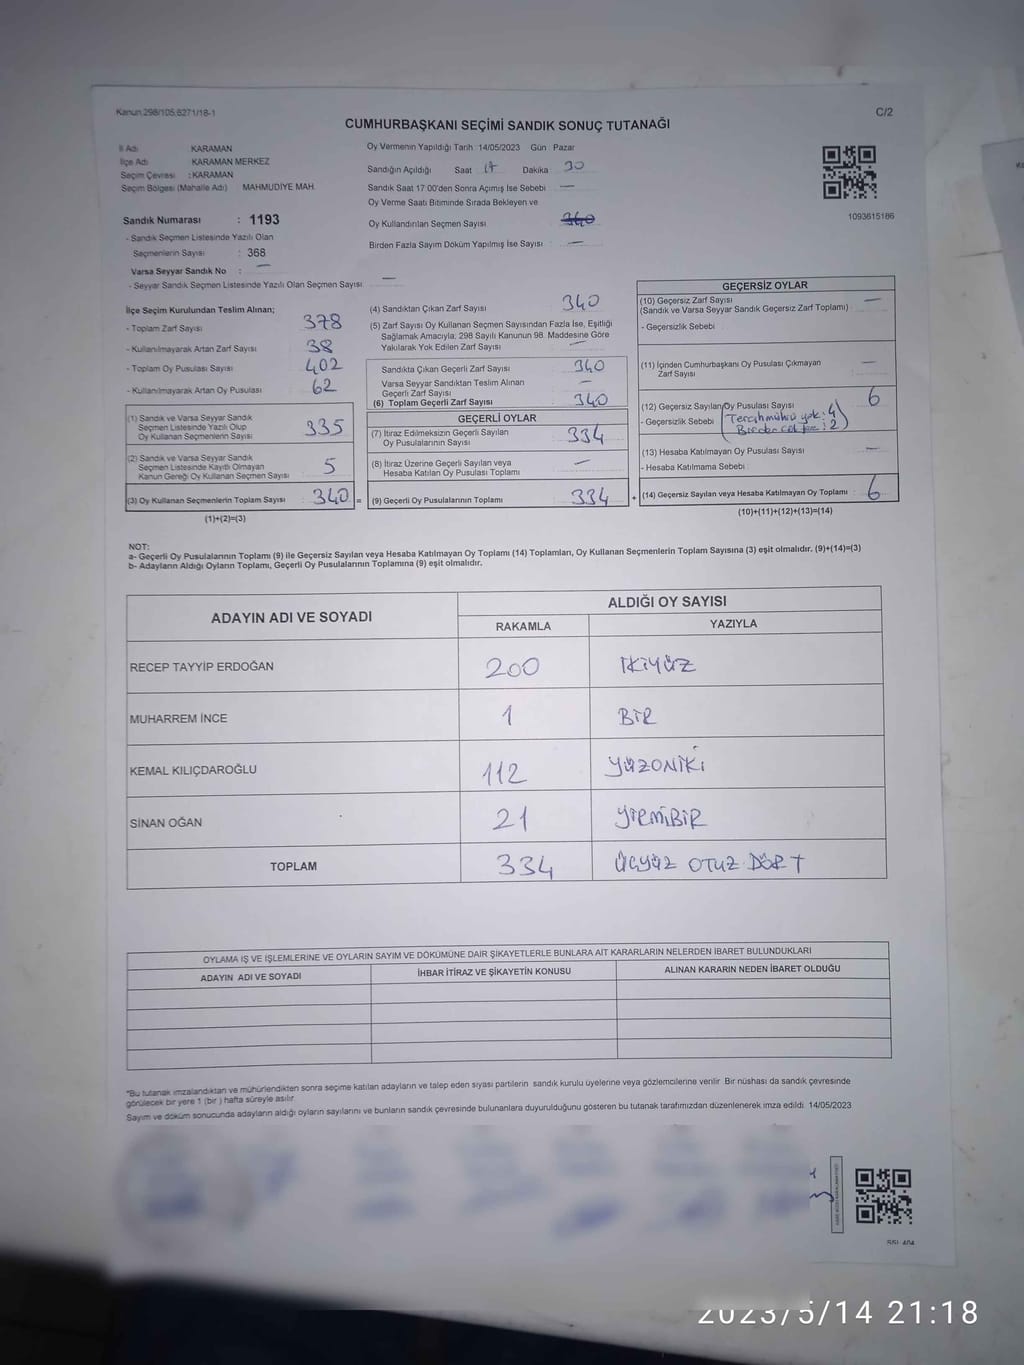 Kanun 298/105,6271/18-1
C/2
CUMHURBAŞKANI SEÇİMİ SANDIK SONUÇ TUTANAĞI
İl Adı KARAMAN
İlçe Adı KARAMAN MERKEZ
Seçim Çevresi : KARAMAN
Seçim Bölgesi (Mahalle Adı) MAHMUDİYE MAH.
Sandık Numarası : 1193
- Sandık Seçmen Listesinde Yazılı Olan
Seçmenlerin Sayısı : 368
Varsa Seyyar Sandık No : —
- Seyyar Sandık Seçmen Listesinde Yazılı Olan Seçmen Sayısı —
Oy Vermenin Yapıldığı Tarih 14/05/2023 Gün Pazar
Sandığın Açıldığı Saat 17 Dakika 30
Sandık Saat 17:00'den Sonra Açımış İse Sebebi —
Oy Verme Saati Bitiminde Sırada Bekleyen ve
Oy Kullandırılan Seçmen Sayısı 340
Birden Fazla Sayım Döküm Yapılmış İse Sayısı —
1093615186
İlçe Seçim Kurulundan Teslim Alınan;
- Toplam Zarf Sayısı 378
- Kullanılmayarak Artan Zarf Sayısı 38
- Toplam Oy Pusulası Sayısı 402
- Kullanılmayarak Artan Oy Pusulası 62
(1) Sandık ve Varsa Seyyar Sandık
Seçmen Listesinde Yazılı Olup
Oy Kullanan Seçmenlerin Sayısı 335
(2) Sandık ve Varsa Seyyar Sandık
Seçmen Listesinde Kayıtlı Olmayan
Kanun Gereği Oy Kullanan Seçmen Sayısı 5
(3) Oy Kullanan Seçmenlerin Toplam Sayısı 340 =
(1)+(2)=(3)
(4) Sandıktan Çıkan Zarf Sayısı 340
(5) Zarf Sayısı Oy Kullanan Seçmen Sayısından Fazla İse, Eşitliği
Sağlamak Amacıyla; 298 Sayılı Kanunun 98. Maddesine Göre
Yakılarak Yok Edilen Zarf Sayısı —
Sandıkta Çıkan Geçerli Zarf Sayısı 340
Varsa Seyyar Sandıktan Teslim Alınan
Geçerli Zarf Sayısı —
(6) Toplam Geçerli Zarf Sayısı 340
GEÇERLİ OYLAR
(7) İtiraz Edilmeksizin Geçerli Sayılan
Oy Pusulalarının Sayısı 334
(8) İtiraz Üzerine Geçerli Sayılan veya
Hesaba Katılan Oy Pusulası Toplamı —
(9) Geçerli Oy Pusulalarının Toplamı 334 +
GEÇERSİZ OYLAR
(10) Geçersiz Zarf Sayısı —
(Sandık ve Varsa Seyyar Sandık Geçersiz Zarf Toplamı)
- Geçersizlik Sebebi
(11) İçinden Cumhurbaşkanı Oy Pusulası Çıkmayan
Zarf Sayısı —
(12) Geçersiz Sayılan Oy Pusulası Sayısı 6
- Geçersizlik Sebebi Tercih mührü yok: 4
: 2
(13) Hesaba Katılmayan Oy Pusulası Sayısı —
- Hesaba Katılmama Sebebi
(14) Geçersiz Sayılan veya Hesaba Katılmayan Oy Toplamı 6
(10)+(11)+(12)+(13)=(14)
NOT:
a- Geçerli Oy Pusulalarının Toplamı (9) ile Geçersiz Sayılan veya Hesaba Katılmayan Oy Toplamı (14) Toplamları, Oy Kullanan Seçmenlerin Toplam Sayısına (3) eşit olmalıdır. (9)+(14)=(3)
b- Adayların Aldığı Oyların Toplamı, Geçerli Oy Pusulalarının Toplamına (9) eşit olmalıdır.
ADAYIN ADI VE SOYADI
ALDIĞI OY SAYISI
RAKAMLA YAZIYLA
RECEP TAYYİP ERDOĞAN 200 İKİYÜZ
MUHARREM İNCE 1 BİR
KEMAL KILIÇDAROĞLU 112 YÜZONİKİ
SİNAN OĞAN 21 YİRMİBİR
TOPLAM 334 ÜÇYÜZ OTUZ DÖRT
OYLAMA İŞ VE İŞLEMLERİNE VE OYLARIN SAYIM VE DÖKÜMÜNE DAİR ŞİKAYETLERLE BUNLARA AİT KARARLARIN NELERDEN İBARET BULUNDUKLARI
ADAYIN ADI VE SOYADI İHBAR İTİRAZ VE ŞİKAYETİN KONUSU ALINAN KARARIN NEDEN İBARET OLDUĞU
*Bu tutanak imzalandıktan ve mühürlendikten sonra seçime katılan adayların ve talep eden siyasi partilerin sandık kurulu üyelerine veya gözlemcilerine verilir. Bir nüshası da sandık çevresinde
görülecek bir yere 1 (bir) hafta süreyle asılır.
Sayım ve döküm sonucunda adayların aldığı oyların sayılarını ve bunların sandık çevresinde bulunanlara duyurulduğunu gösteren bu tutanak tarafımızdan düzenlenerek imza edildi. 14/05/2023
2023/5/14 21:18